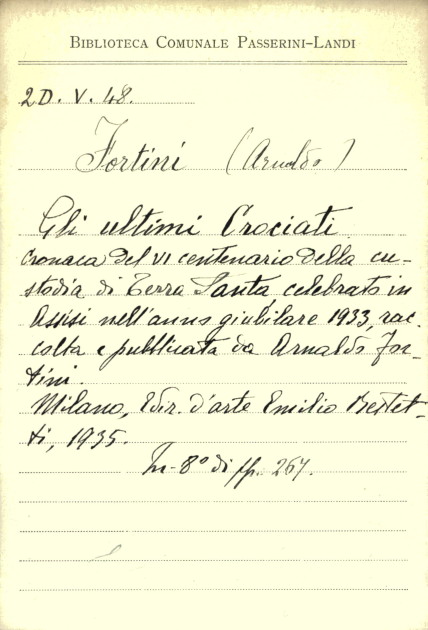 BIBLIOTECA COMUNALE PASSERINI-LANDI
2D. V. 48.
Fortini (Arnaldo)
Gli ultimi Crociati
Cronaca del VI centenario della cu-
stodia di Terra Santa, celebrato in
Assisi nell'anno giubilare 1933, rac-
colta e pubblicata da Arnaldo For-
tini.
Milano, Ediz. d'arte Emilio Bestet-
ti, 1935.
In-8° di pp. 267.